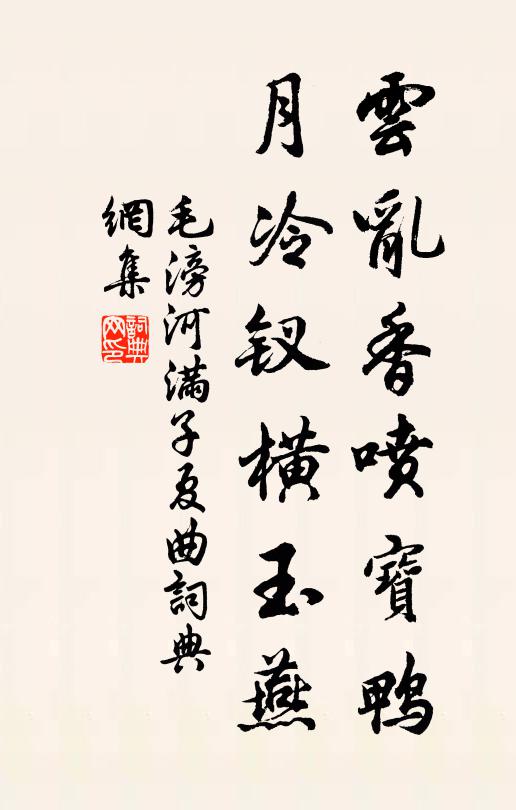 雲亂香噴寶鴨
月冷釵橫玉燕
毛滂河滿子夏曲詞典
網集
詞典
网印